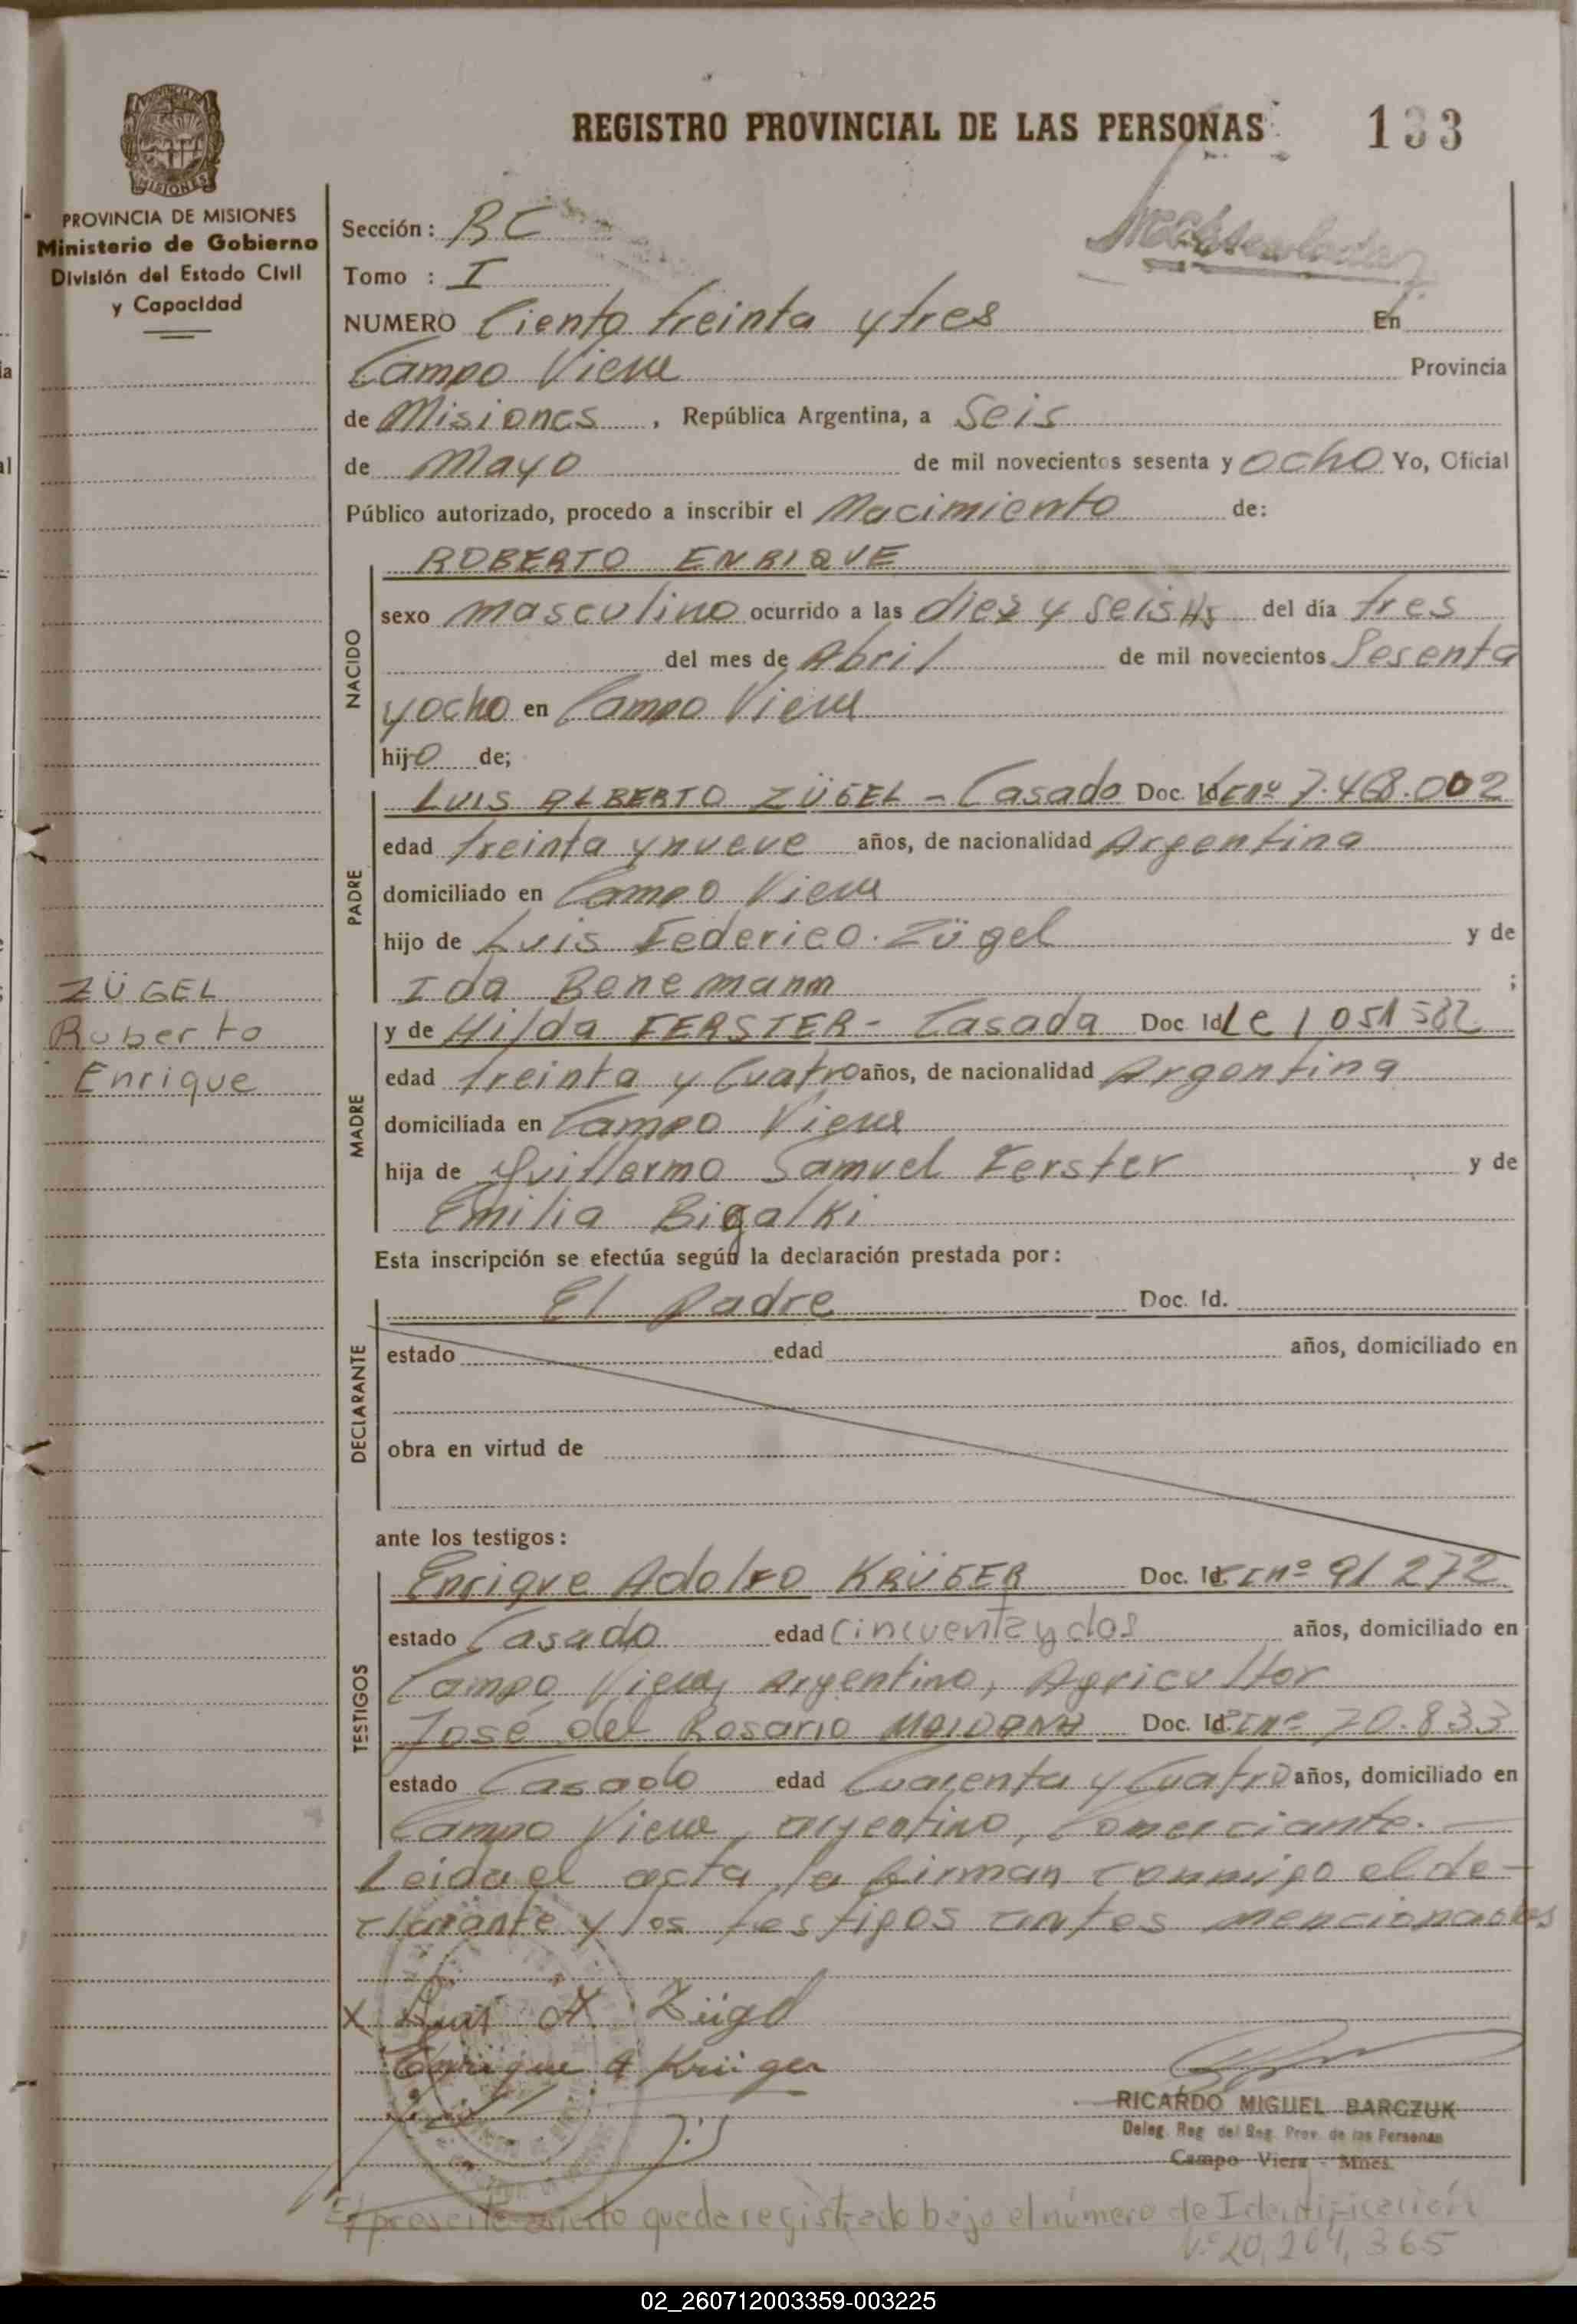 REGISTRO PROVINCIAL DE LAS PERSONAS 133
MISIONES
PROVINCIA DE MISIONES
Ministerio de Gobierno
División del Estado Civil
y Capacidad
Sección: RC
Tomo : I
NUMERO Ciento treinta y tres En
Campo Viera Provincia
de Misiones, República Argentina, a Seis
de Mayo de mil novecientos sesenta y ocho Yo, Oficial
Público autorizado, procedo a inscribir el Nacimiento de:
NACIDO
ROBERTO ENRIQUE
sexo masculino ocurrido a las diez y seis Hs del día tres
del mes de Abril de mil novecientos Sesenta
y ocho en Campo Viera
hijo de;
PADRE
LUIS ALBERTO ZÜGEL - Casado Doc. Id. nº 7.468.002
edad treinta y nueve años, de nacionalidad Argentina
domiciliado en Campo Viera
hijo de Luis Federico Zügel y de
Ida Benemann ;
ZÜGEL
Roberto
Enrique
MADRE
y de Hilda FERSTER - Casada Doc. Id. LC 1 051 582
edad treinta y Cuatro años, de nacionalidad Argentina
domiciliada en Campo Viera
hija de Guillermo Samuel Ferster y de
Emilia Bigalki
Esta inscripción se efectúa según la declaración prestada por:
DECLARANTE
El Padre Doc. Id.
estado edad años, domiciliado en
obra en virtud de
ante los testigos:
TESTIGOS
Enrique Adolfo KRÜGER Doc. Id. CI nº 91 272
estado Casado edad Cincuenta y dos años, domiciliado en
Campo Viera, Argentino, Agricultor
José del Rosario MAIDANA Doc. Id. CI nº 70.833
estado Casado edad Cuarenta y Cuatro años, domiciliado en
Campo Viera, argentino, Comerciante.-
Leida el acta la firman conmigo el de-
clarante y los testigos antes mencionados
X Luis A. Zügel
Enrique A Krüger
RICARDO MIGUEL BARCZUK
Deleg. Reg. del Reg. Prov. de las Personas
Campo Viera - Mnes.
El presente asiento queda registrado bajo el número de Identificación
Nº 20,204,365
02_260712003359-003225